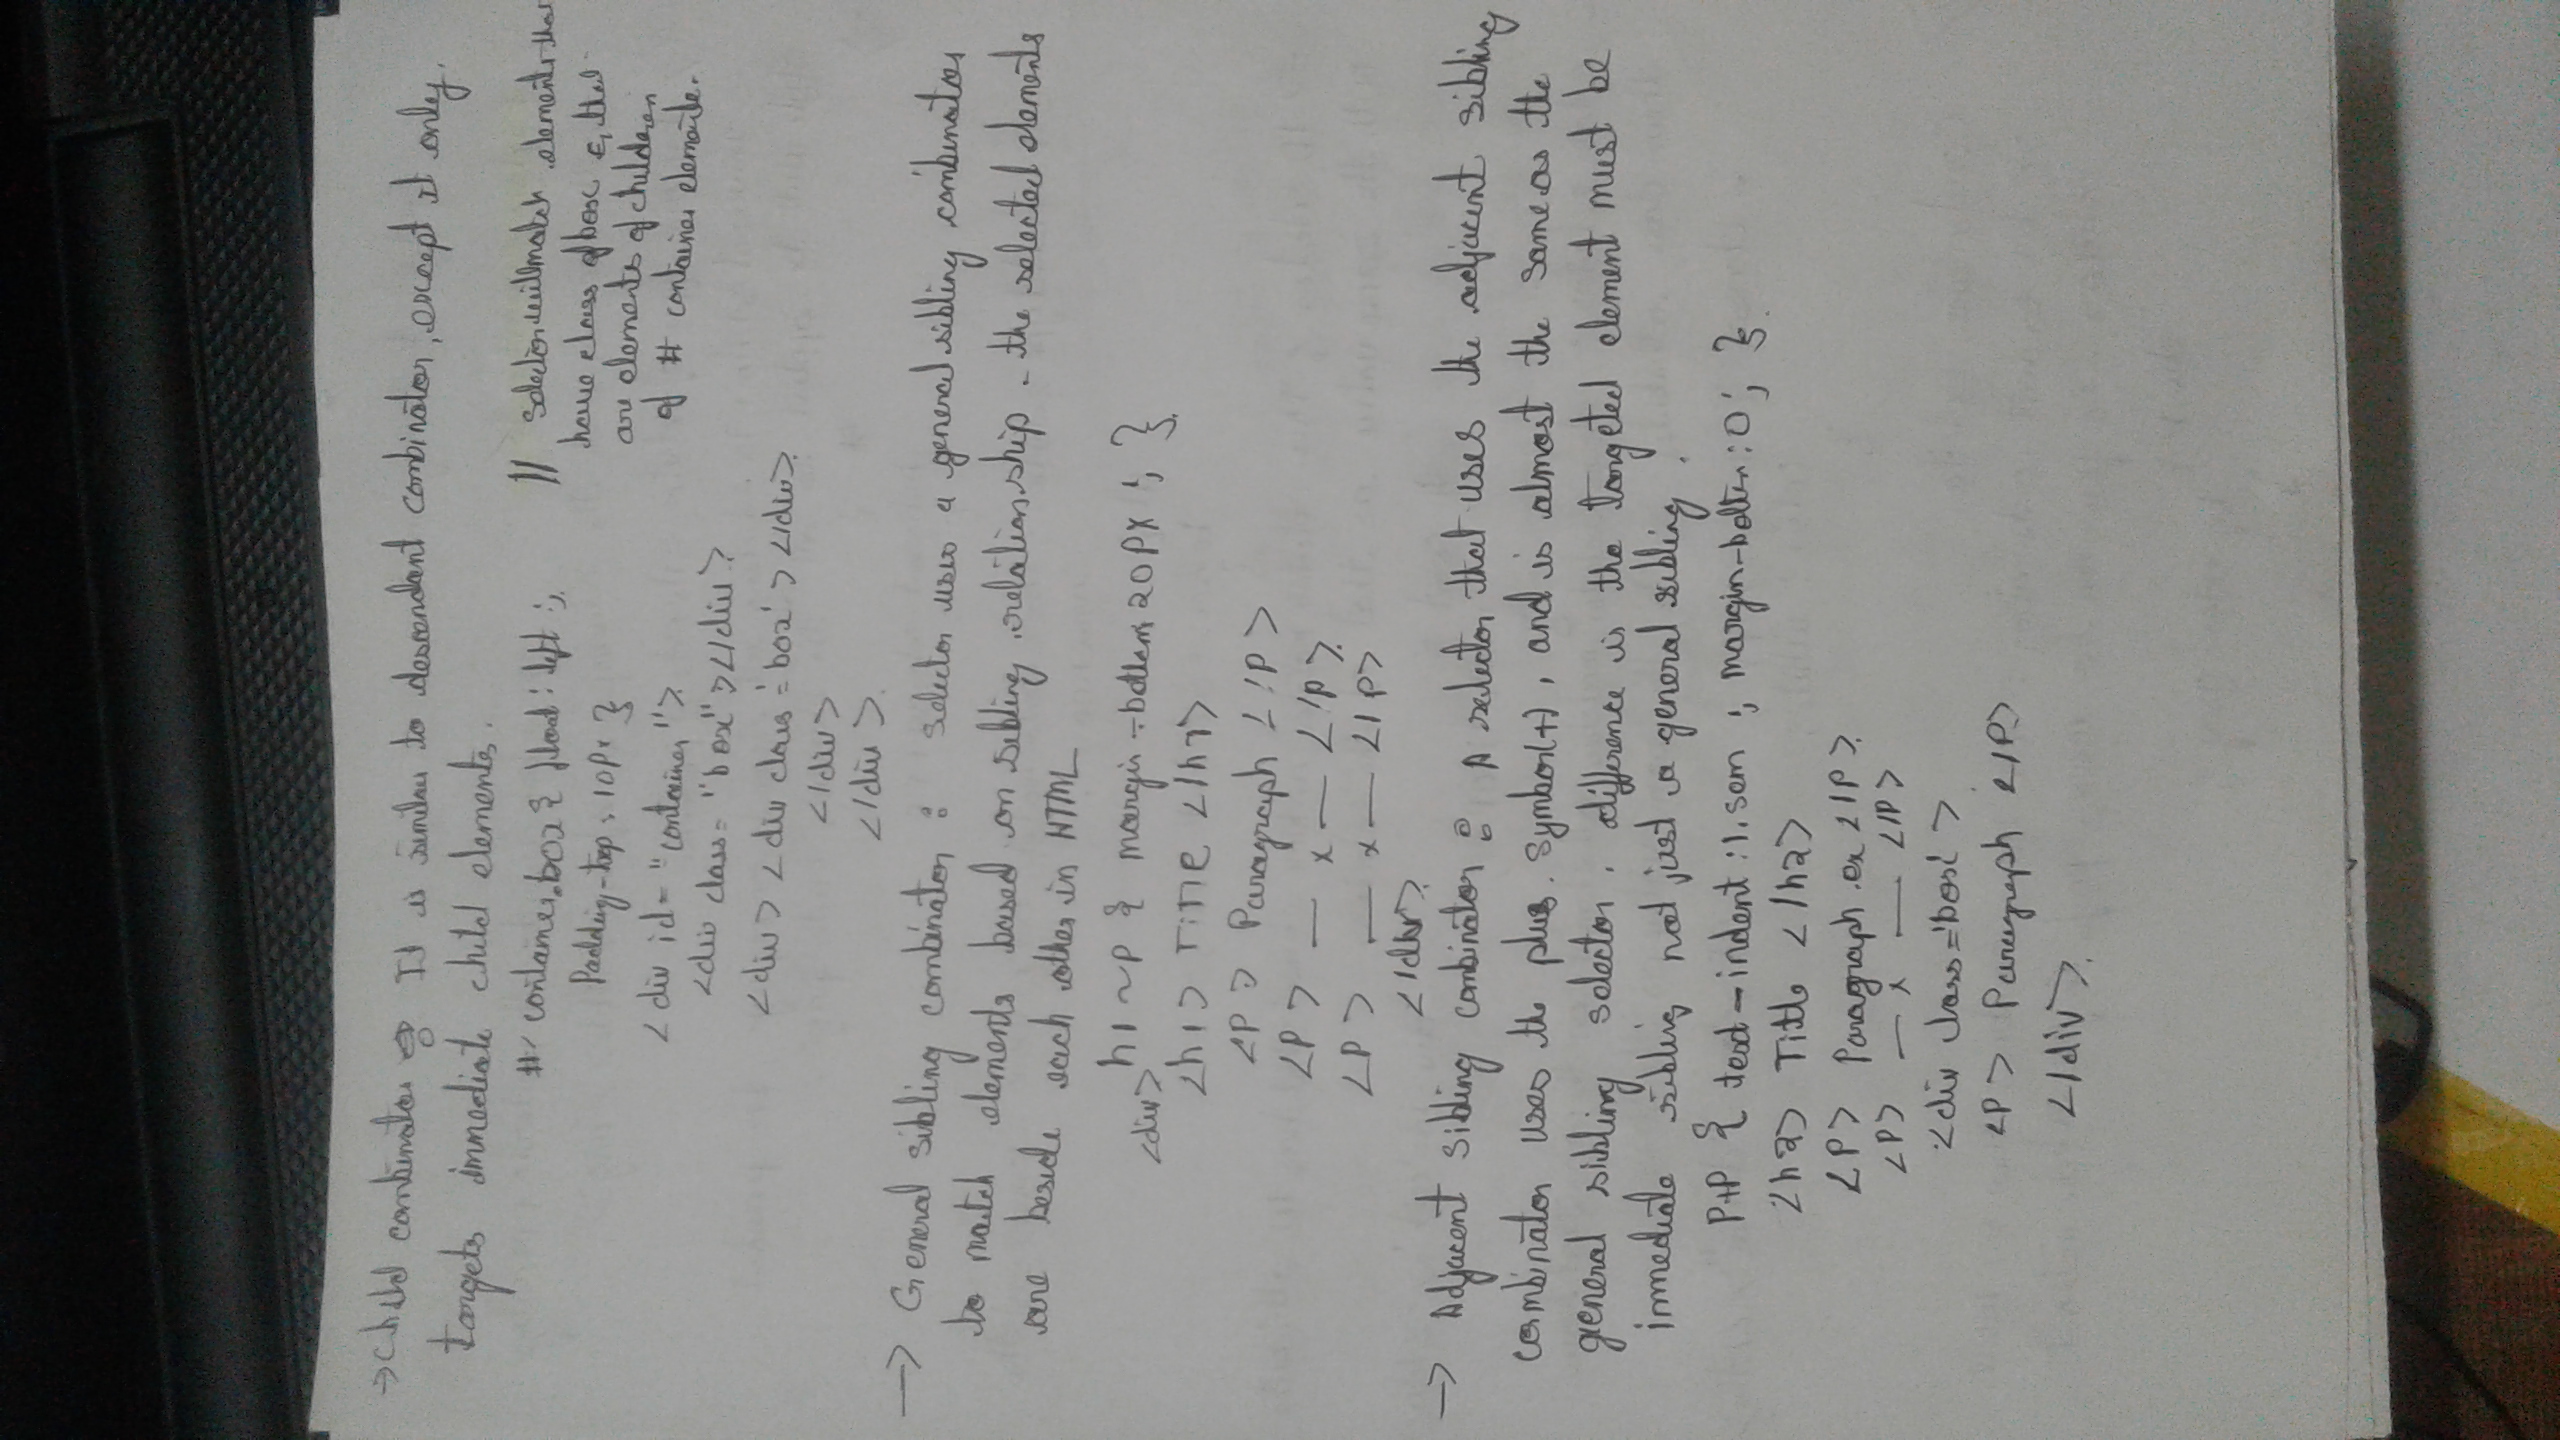 → Child combinator : It is similar to descendant combinator, except it only
targets immediate child elements.
# container.box { float : left ;
// selector will match elements that
Padding-top : 10px }
have class of box & that
are elements of children
of # container elements.
<div id = "container">
<div class= "box"></div>
<div> <div class ='box' > </div>
</div>
</div>
→ General sibling combinator : selector uses a general sibling combinator
to match elements based on sibling relationship - the selected elements
are beside each other in HTML
h1 ~ p { margin-bottom 20px ; }
<div>
<h1> Title </h1>
<p> Paragraph </p>
<p> — x — </p>
<p> — x — </p>
</div>
→ Adjacent sibling combinator : A selector that uses the adjacent sibling
combinator uses the plus symbol(+), and is almost the same as the
general sibling selector. difference is the targeted element must be
immediate sibling not just a general sibling.
P+P { text-indent : 1.5em ; margin-bottom : 0 ; }
<h2> Title </h2>
<P> Paragraph ex </P>
<P> — x — </P>
<div class='box' >
<P> Paragraph </P>
</div>